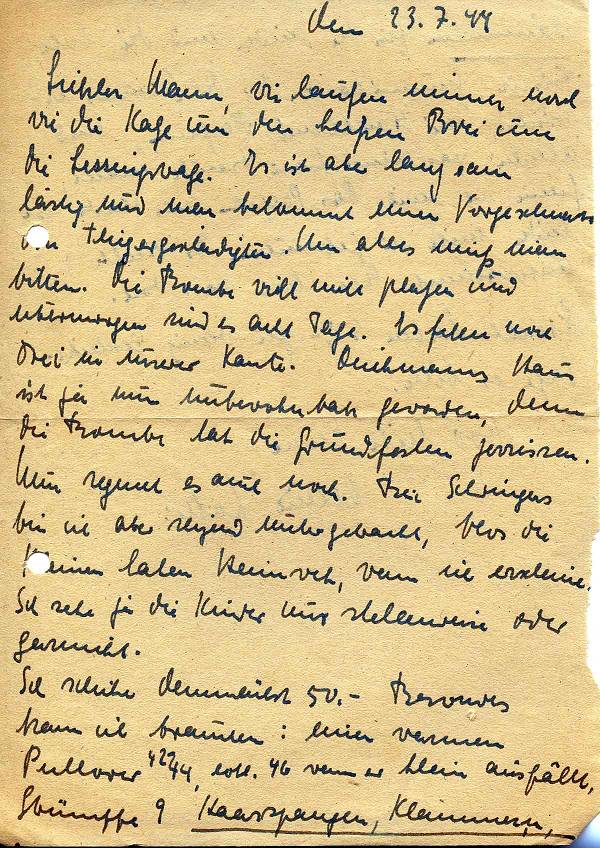 den 23.7.44
Lieber Mann, wir laufen immer noch
wie die Katze um den heißen Brei um
die Lessingstrage. Es ist aber langsam
lästig und man bekommt einen Vorgeschmack
von Um alles muß man
bitten. Die Bombe will nicht platzen und
übermorgen sind es acht Tage. Es fielen noch
drei in unserer Kante. Haus
ist ja nun unbewohnbar geworden, denn
die Bombe hat die Grundfesten zerrissen.
Nun regnet es auch noch. Bei Schwingers
bin ich aber reizend untergebracht, blos die
Kleinen haben Heimweh, wenn ich erscheine.
Ich sehe ja die Kinder nur stellenweise oder
gemischt.
Ich schicke demnächst 50.- Besonders
kann ich brauchen: einen warmen
Pullover 42/44, evtl. 46 wenn er klein ausfällt,
Strümpfe 9 Haarspangen, Klammern,